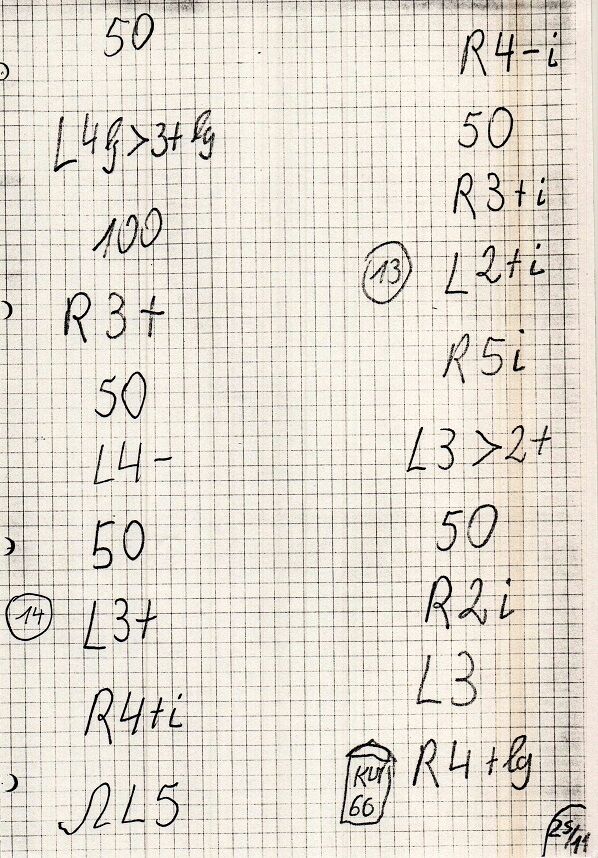 50
L4lg>3+lg
100
R3+
50
L4-
50
14 L3+
R4+i
L5
R4-i
50
R3+i
13 L2+i
R5i
L3>2+
50
R2i
L3
R4+lg
66
25/11